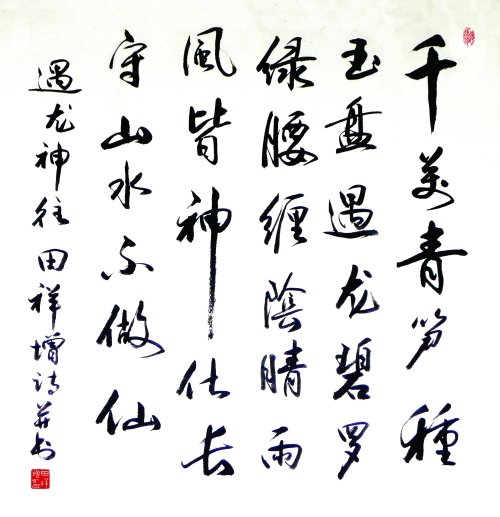 千萬青笋種
玉盘遇龙碧罗
绿腰缠陰晴雨
風皆神仕长
守山水不做仙
遇龙神往田祥增诗并书